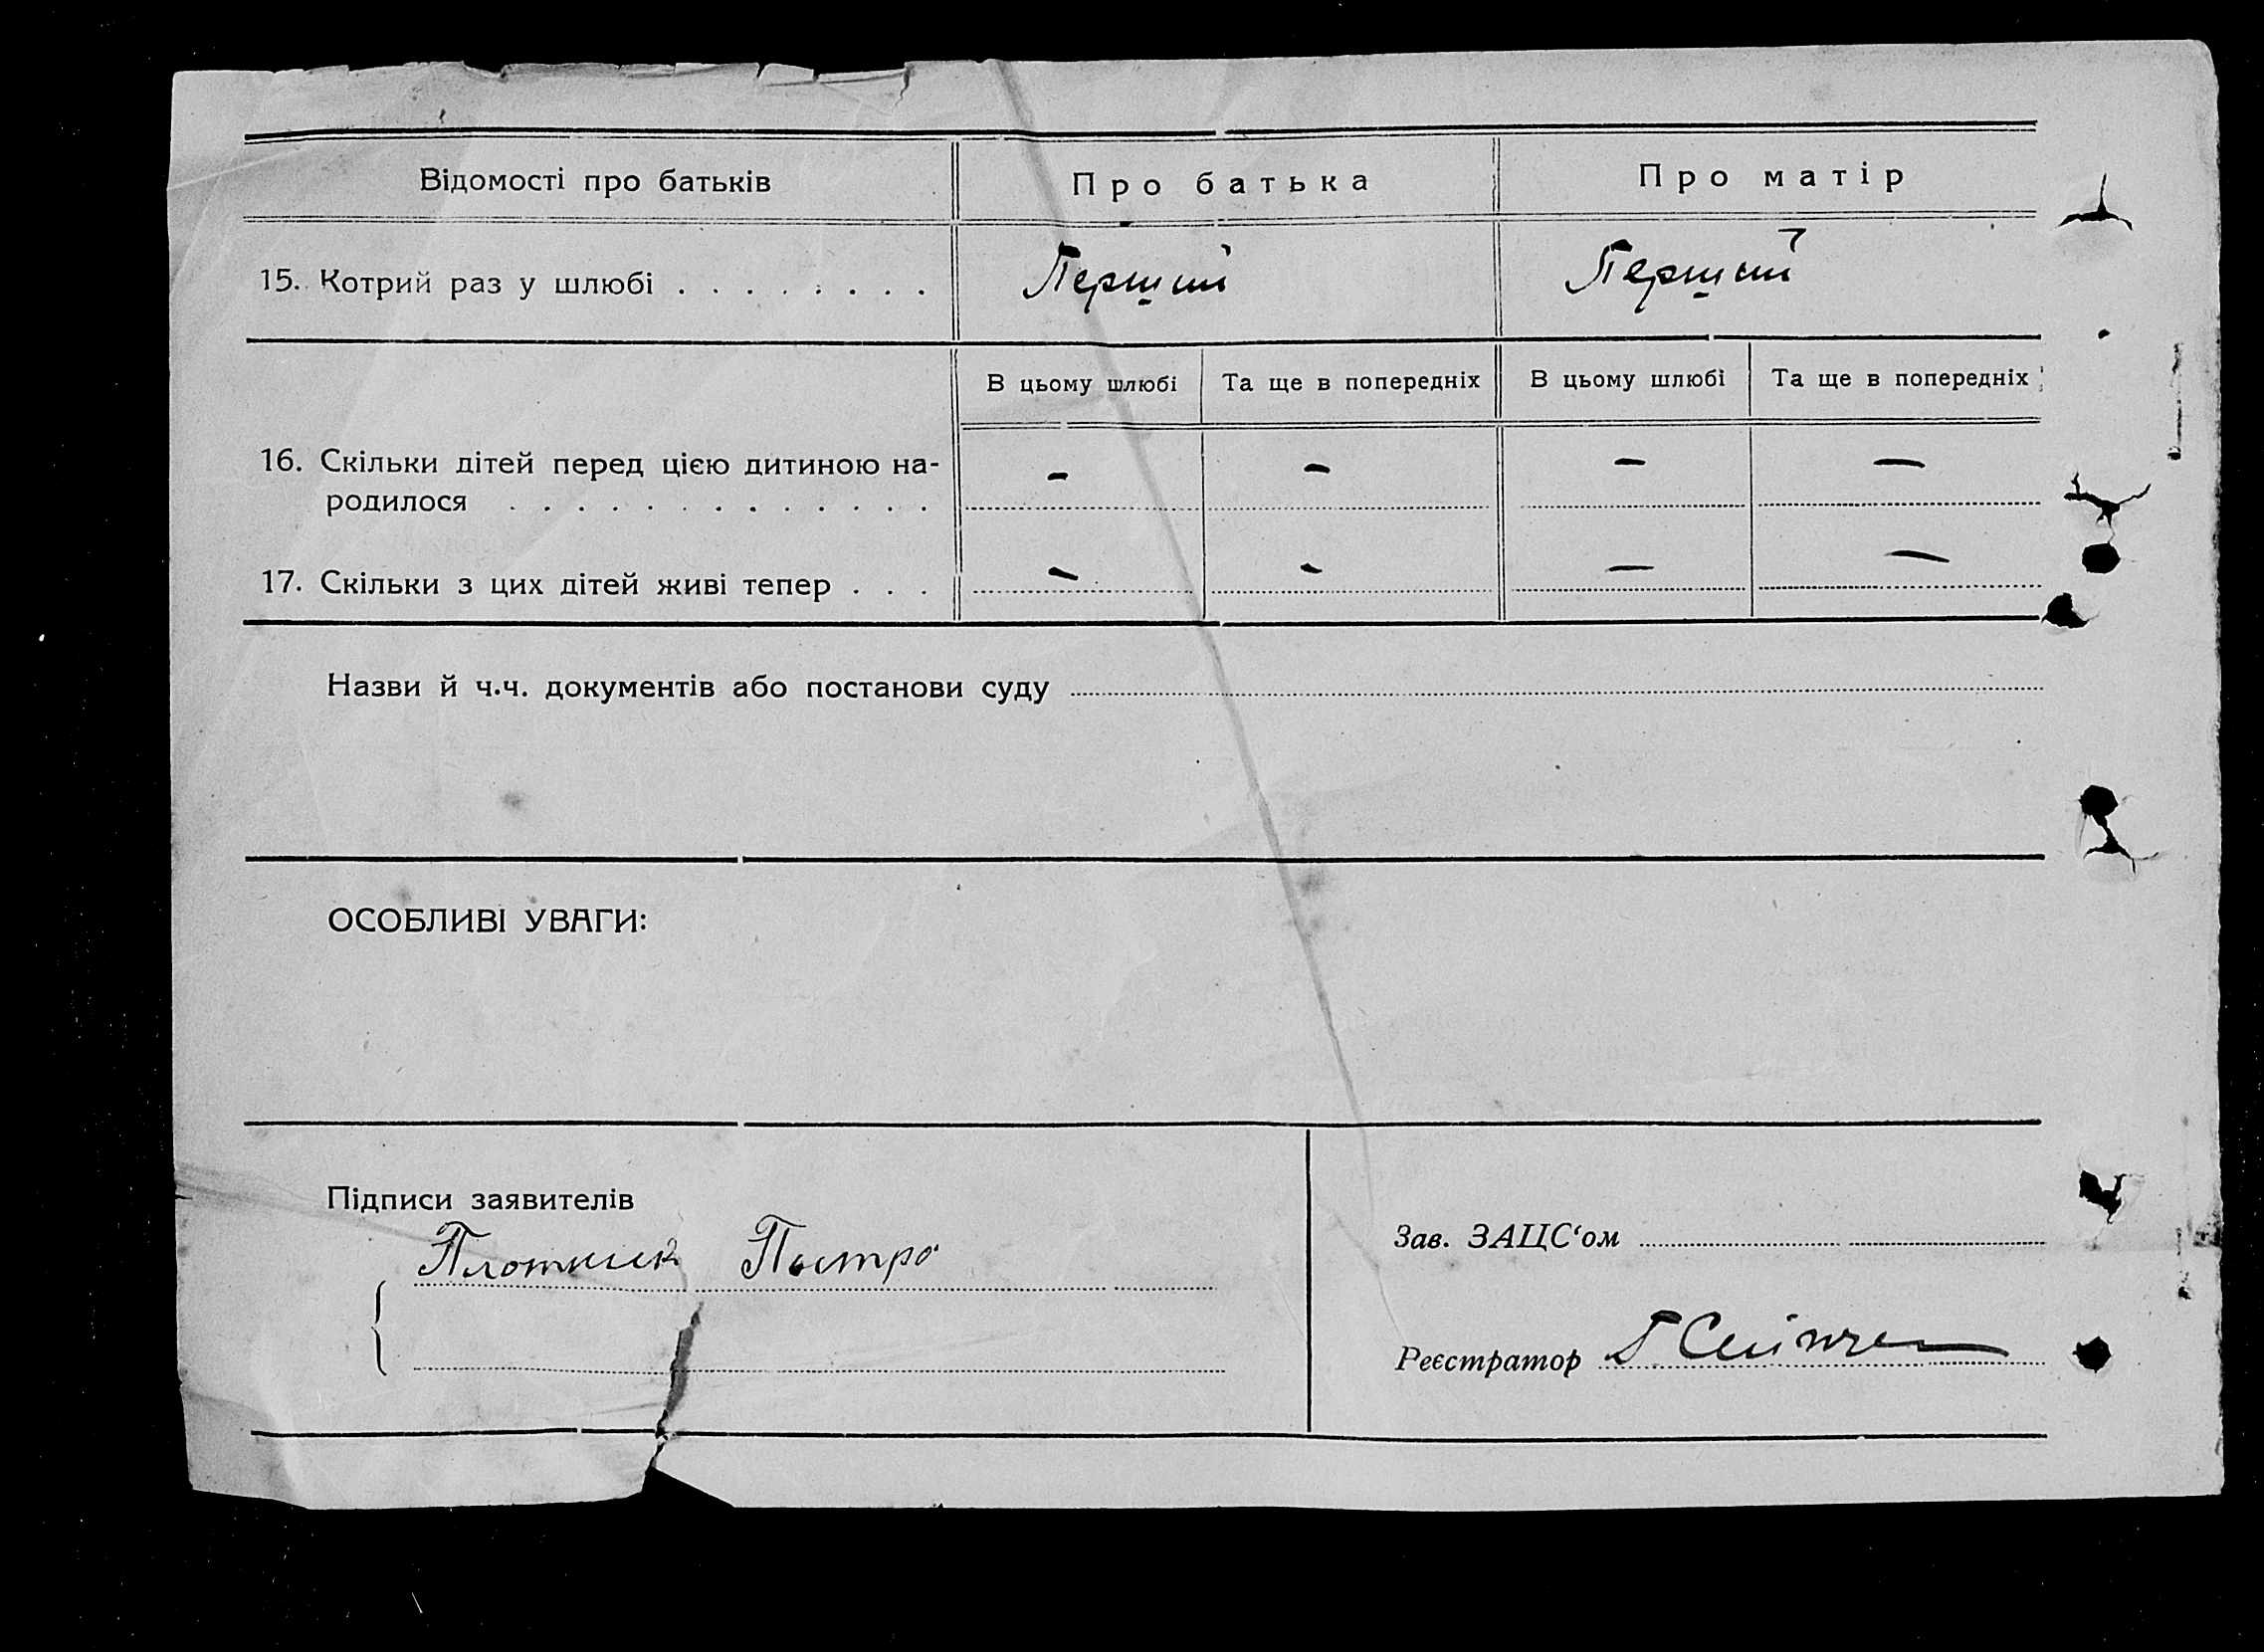 Відомості про батьків
Про батька
Про матір
15. Котрий раз у шлюбі . . . . . . . .
Перший
Перший
В цьому шлюбі
Та ще в попередніх
В цьому шлюбі
Та ще в попередніх
16. Скільки дітей перед цією дитиною на-
родилося . . . . . . . . . . . . .
–
–
–
–
17. Скільки з цих дітей живі тепер . . .
–
–
–
–
Назви й ч.ч. документів або постанови суду
ОСОБЛИВІ УВАГИ:
Підписи заявителів
Плотник
Зав. ЗАЦС‘ом
Реєстратор